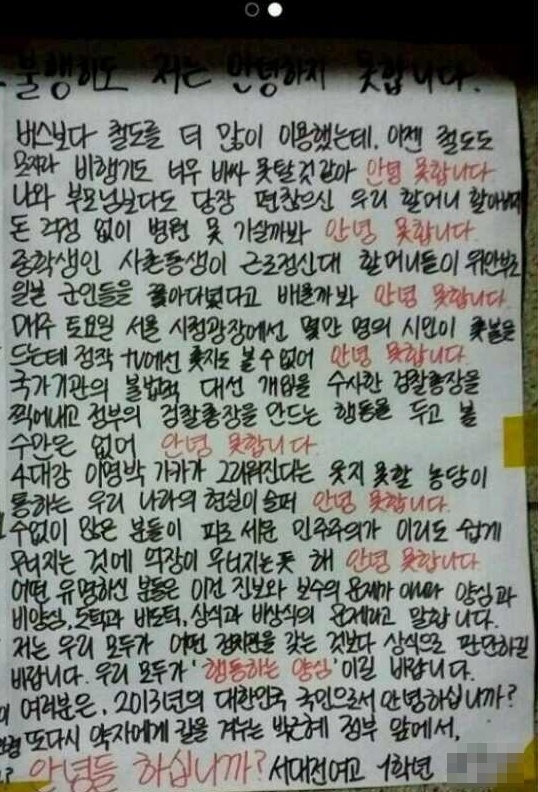 불행히도 저는 안녕하지 못합니다.
버스보다 철도를 더 많이 이용했는데, 이젠 철도도
모자라 비행기도 너무 비싸 못탈것같아 안녕 못합니다
나와 부모님보다도 당장 편찮으신 우리 할머니 할아버지
돈 걱정 없이 병원 못 가실까봐 안녕 못합니다.
중학생인 사촌동생이 근로정신대 할머니들이 위안부로
일본 군인들을 쫓아다녔다고 배울까봐 안녕 못합니다.
매주 토요일 서울 시청광장에서 몇만 명의 시민이 촛불을
드는데 정작 tv에선 촛지도 볼 수 없어 안녕 못합니다
국가기관의 불법적 대선 개입을 수사한 검찰총장을
찍어내고 정부의 검찰총장을 만드는 행동을 두고 볼
수만은 없어 안녕 못합니다.
4대강 이명박 가카가 그리워진다는 웃지 못할 농담이
통하는 우리 나라의 현실이 슬퍼 안녕 못합니다.
수없이 많은 분들이 피로 세운 민주주의가 이리도 쉽게
무너지는 것에 억장이 무너지는듯 해 안녕 못합니다.
어떤 유명하신 분들은 이건 진보와 보수의 문제가 아니라 양심과
비양심, 도덕과 비도덕, 상식과 비상식의 문제라고 말합니다.
저는 우리 모두가 어떤 정치관을 갖는 것보다 상식으로 판단하길
바랍니다. 우리 모두가 '행동하는 양심'이길 바랍니다.
여러분은, 2013년의 대한민국 국민으로서 안녕하십니까?
또다시 약자에게 칼을 겨누는 박근혜 정부 앞에서,
안녕들 하십니까? 서대전여고 1학년